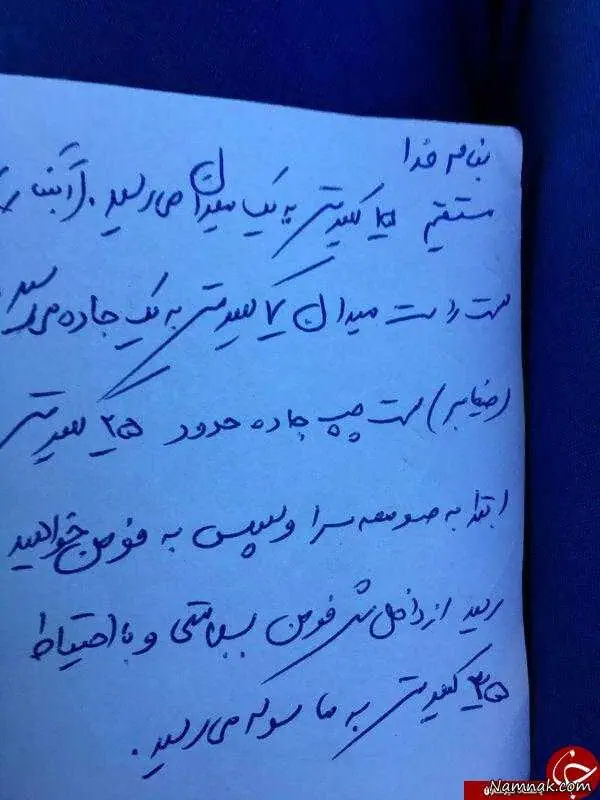 بنام خدا
مستقیم ۱۵ کیلومتر به یک میدان می‌رسید. (آبشار
سمت راست میدان ۷ کیلومتر به یک جاده می‌رسید
(ضیابر) سمت چپ جاده حدود ۲۵ کیلومتر
ابتدا به صومعه سرا و سپس به فومن خواهید
رسید از داخل شهر فومن بسلامتی و با احتیاط
۳۵ کیلومتر به ماسوله می‌رسید.
Namnak.com